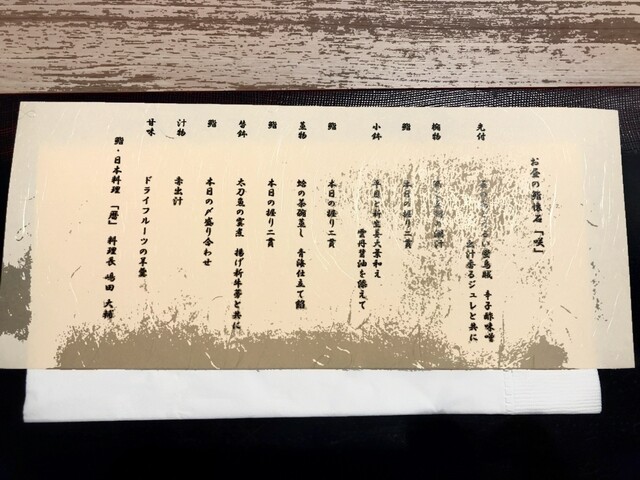 お昼の鮨懐石「咲」
先付
蛍烏賊 辛子酢味噌
出汁香るジュレと共に
椀物
鮨
本日の握り二貫
小鉢
平目と新生姜大葉和え
雲丹醤油を添えて
鮨
本日の握り二貫
蒸物
蛤の茶碗蒸し 青海仕立て餡
鮨
本日の握り二貫
替鉢
太刀魚の雲丹 揚げ新牛蒡と共に
鮨
本日の〆盛り合わせ
汁物
赤出汁
甘味
ドライフルーツの羊羹
鮨・日本料理「暦」料理長 嶋田 大輔